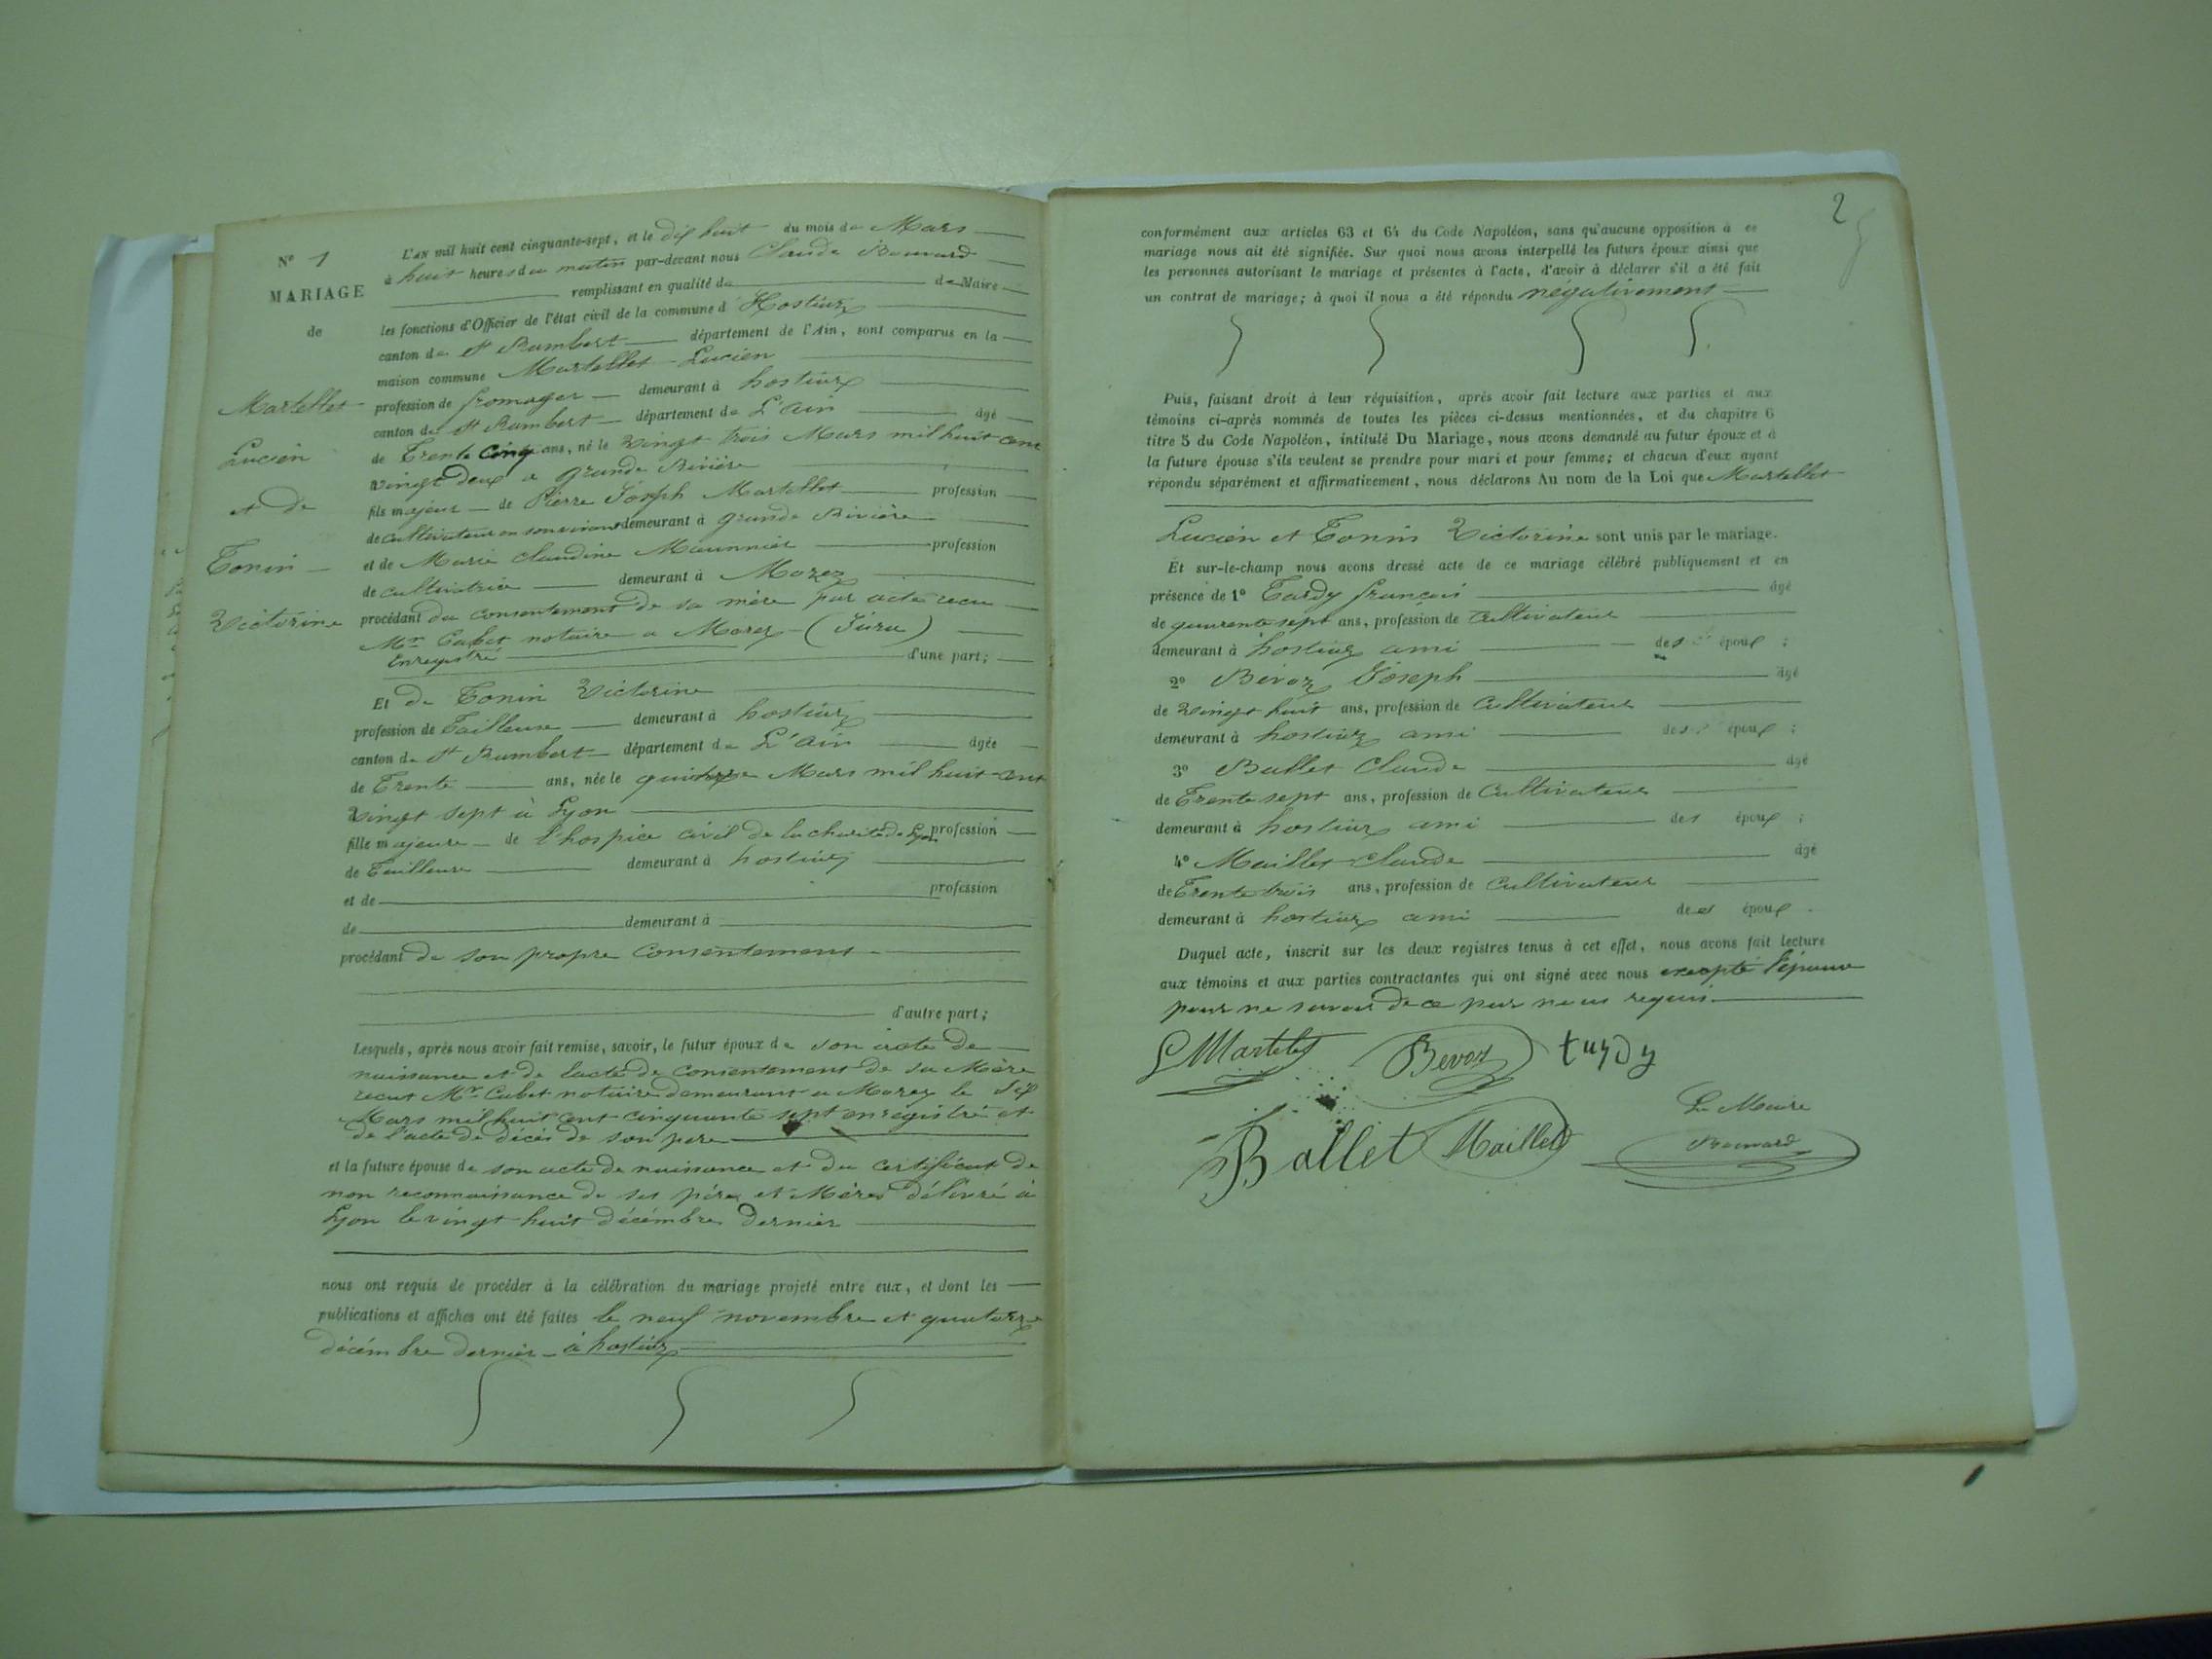 N° 1
MARIAGE
de
Martellet
Lucien
et de
Tonin
Victorine
L'AN mil huit cent cinquante-sept, et le dix huit du mois de Mars
à huit heures du matin par-devant nous Claude
remplissant en qualité de de Maire
les fonctions d'Officier de l'état civil de la commune d'Hostiaz
canton de St Rambert département de l'Ain, sont comparus en la
maison commune Martellet Lucien
profession de fromager demeurant à hostiaz
canton de St Rambert département de L'ain âgé
de Trente Cinq ans, né le vingt trois Mars mil huit cent
vingt deux a grande Rivière
fils majeur de Pierre Joseph Martellet profession
de cultivateur en son vivant demeurant à grande Rivière
et de Marie claudine profession
de cultivatrice demeurant à Morez
procédant du consentement de sa mère par acte recu
Mr Cabet notaire a Morez (Jura)
Enregistré d'une part;
Et de Tonin Victorine
profession de Tailleuse demeurant à hostiaz
canton de St Rambert département de L'ain âgée
de Trente ans, née le quinze Mars mil huit cent
vingt sept à Lyon
fille majeure de l'hospice civil de la charité de Lyon profession
de Tailleuse demeurant à hostiaz
et de profession
de demeurant à
procédant de son propre consentement
d'autre part;
Lesquels, après nous avoir fait remise, savoir, le futur époux de son acte de
naissance et de l'acte de consentement de sa Mère
recut Mr Cabet notaire demeurant a Morez le
Mars mil huit cent cinquante sept enregistré et
de l'acte de décès de son père
et la future épouse de son acte de naissance et du certificat de
non reconnaissance de ses père et Mère délivré à
Lyon le vingt huit décémbre dernier
nous ont requis de procéder à la célébration du mariage projeté entre eux, et dont les
publications et affiches ont été faites le neuf novembre et quatorze
décémbre dernier à hostiaz
2
conformément aux articles 63 et 64 du Code Napoléon, sans qu'aucune opposition à ce
mariage nous ait été signifiée. Sur quoi nous avons interpellé les futurs époux ainsi que
les personnes autorisant le mariage et présentes à l'acte, d'avoir à déclarer s'il a été fait
un contrat de mariage; à quoi il nous a été répondu négativement
Puis, faisant droit à leur réquisition, après avoir fait lecture aux parties et aux
témoins ci-après nommés de toutes les pièces ci-dessus mentionnées, et du chapitre 6
titre 5 du Code Napoléon, intitulé Du Mariage, nous avons demandé au futur époux et à
la future épouse s'ils veulent se prendre pour mari et pour femme; et chacun d'eux ayant
répondu séparément et affirmativement, nous déclarons Au nom de la Loi que Martellet
Lucien et Tonin Victorine sont unis par le mariage.
Et sur-le-champ nous avons dressé acte de ce mariage célébré publiquement et en
présence de 1° Tardy françois âgé
de quarente sept ans, profession de Cultivateur
demeurant à hostiaz ami des époux;
2° Bévoz Joseph âgé
de vingt huit ans, profession de Cultivateur
demeurant à hostiaz ami des époux;
3° Ballet Claude âgé
de Trente sept ans, profession de Cultivateur
demeurant à hostiaz ami des époux;
4° Maillet claude âgé
de Trente trois ans, profession de Cultivateur
demeurant à hostiaz ami des époux.
Duquel acte, inscrit sur les deux registres tenus à cet effet, nous avons fait lecture
aux témoins et aux parties contractantes qui ont signé avec nous excepté l'épouse
pour ne savoir de ce par nous requis.
Bevoz tardy
Le Maire
Ballet Maillet